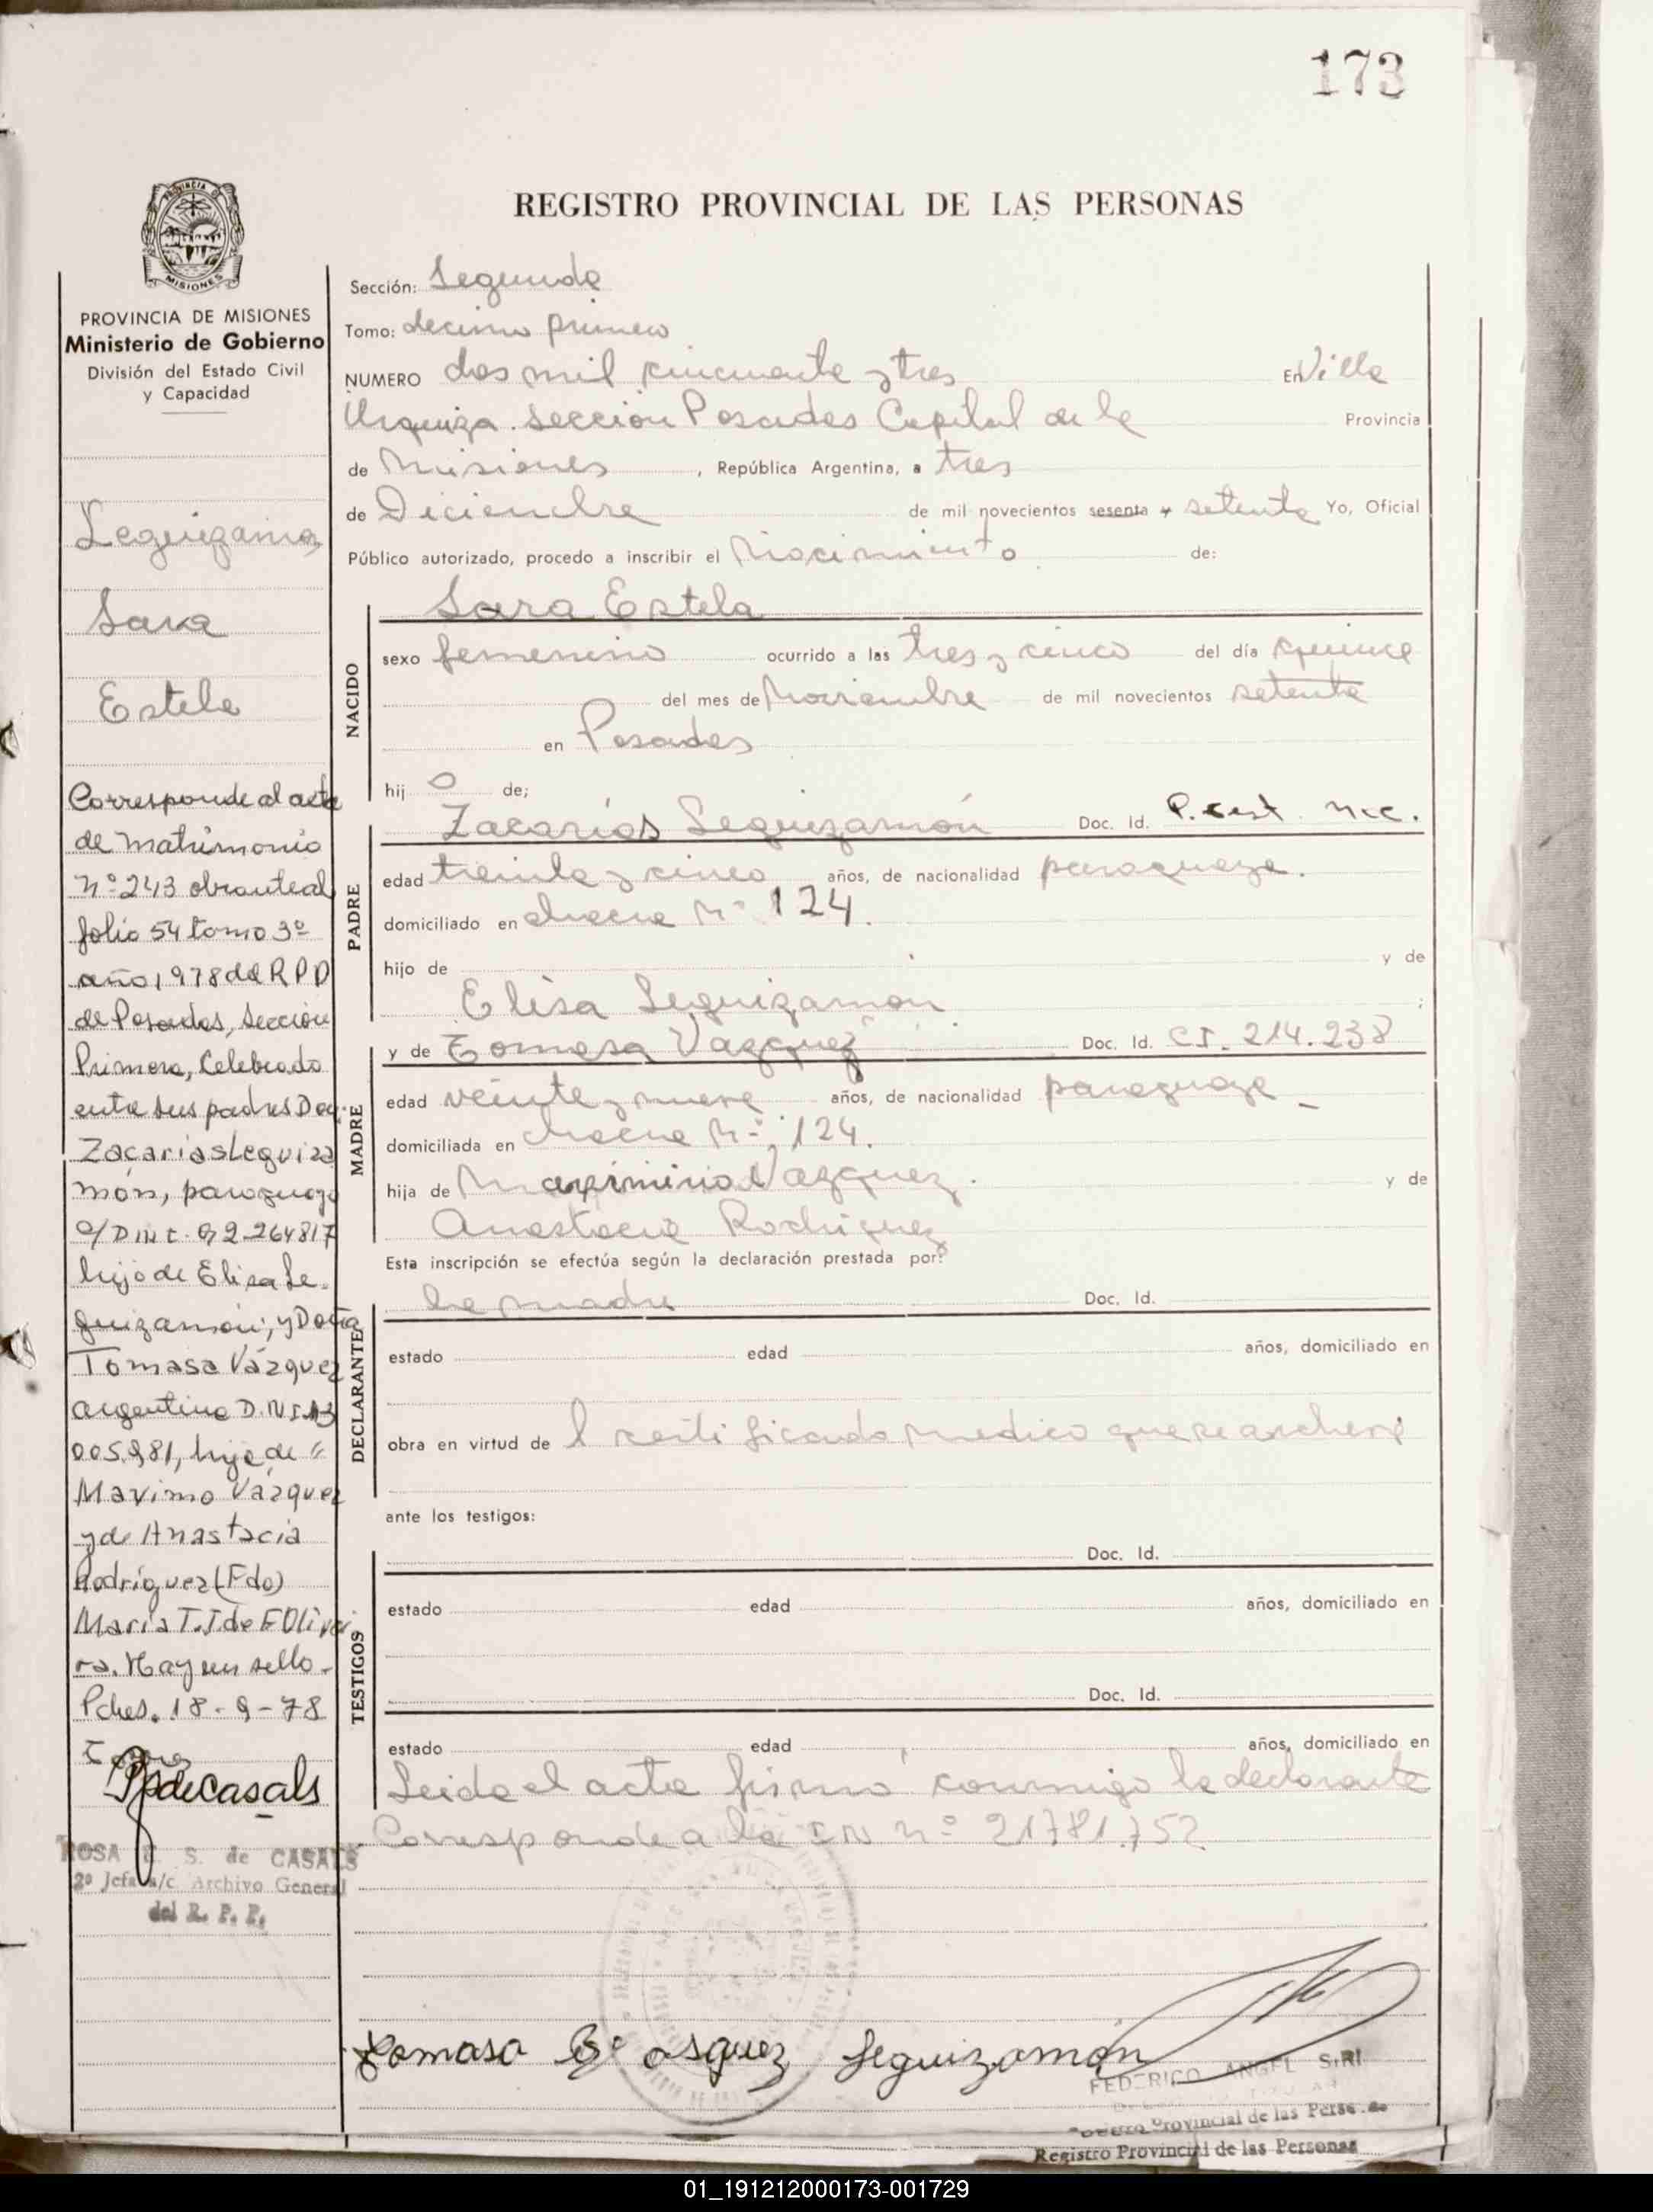 173
REGISTRO PROVINCIAL DE LAS PERSONAS
MISIONES
PROVINCIA DE MISIONES
Ministerio de Gobierno
División del Estado Civil
y Capacidad
Leguizamon
Sara
Estela
Corresponde al acta
de Matrimonio
nº 243 obrante al
folio 54 tomo 3º
año 1978 del R P P
de Posadas, Sección
Primera, Celebrado
entre sus padres Don
Zacarias Leguiza
món, paraguayo
c/ D N I E. 92 264817
hijo de Elisa Le-
guizamón, y Doña
Tomasa Vázquez
argentina D.N I 13
005.981, hija de "
Maximo Vázquez
y de Anastacia
Rodríguez (Fdo)
María T.J de F Olivei
ra. Hay un sello-
Pdas. 18-9-78
Ppdecasals
ROSA S. de CASALS
2º Jefa a/c Archivo General
del R. P. P.
Sección: Segunda
Tomo: decimo primero
NUMERO dos mil cincuenta y tres En Villa
Urquiza Sección Posadas Capital de la Provincia
de Misiones , República Argentina, a tres
de Diciembre de mil novecientos sesenta y setenta Yo, Oficial
Público autorizado, procedo a inscribir el Nacimiento de:
NACIDO
Sara Estela
sexo femenino ocurrido a las tres y cinco del día quince
del mes de Noviembre de mil novecientos setenta
en Posadas
hij a de;
PADRE
Zacarías Leguizamón Doc. Id. P. cert. nac.
edad treinta y cinco años, de nacionalidad paraguaya.
domiciliado en chacra Nº 124.
hijo de y de
Elisa Leguizamon ;
MADRE
y de Tomasa Vazquez Doc. Id. CI. 214.238
edad veinte y nueve años, de nacionalidad paraguaya -
domiciliada en chacra Nº 124.
hija de Maximinio Vazquez. y de
Anastacia Rodriguez
Esta inscripción se efectúa según la declaración prestada por:
DECLARANTE
la madre Doc. Id.
estado edad años, domiciliado en
obra en virtud de l certificado medico que se archiva
ante los testigos:
TESTIGOS
Doc. Id.
estado edad años, domiciliado en
Doc. Id.
estado edad años, domiciliado en
Leida el acta firmó conmigo la declarante
Corresponde a la I N nº 21781.752
Tomasa Bº asquez Leguizamon
FEDERICO ANGEL SIRI
Registro Provincial de las Personas
Registro Provincial de las Personas
01_191212000173-001729